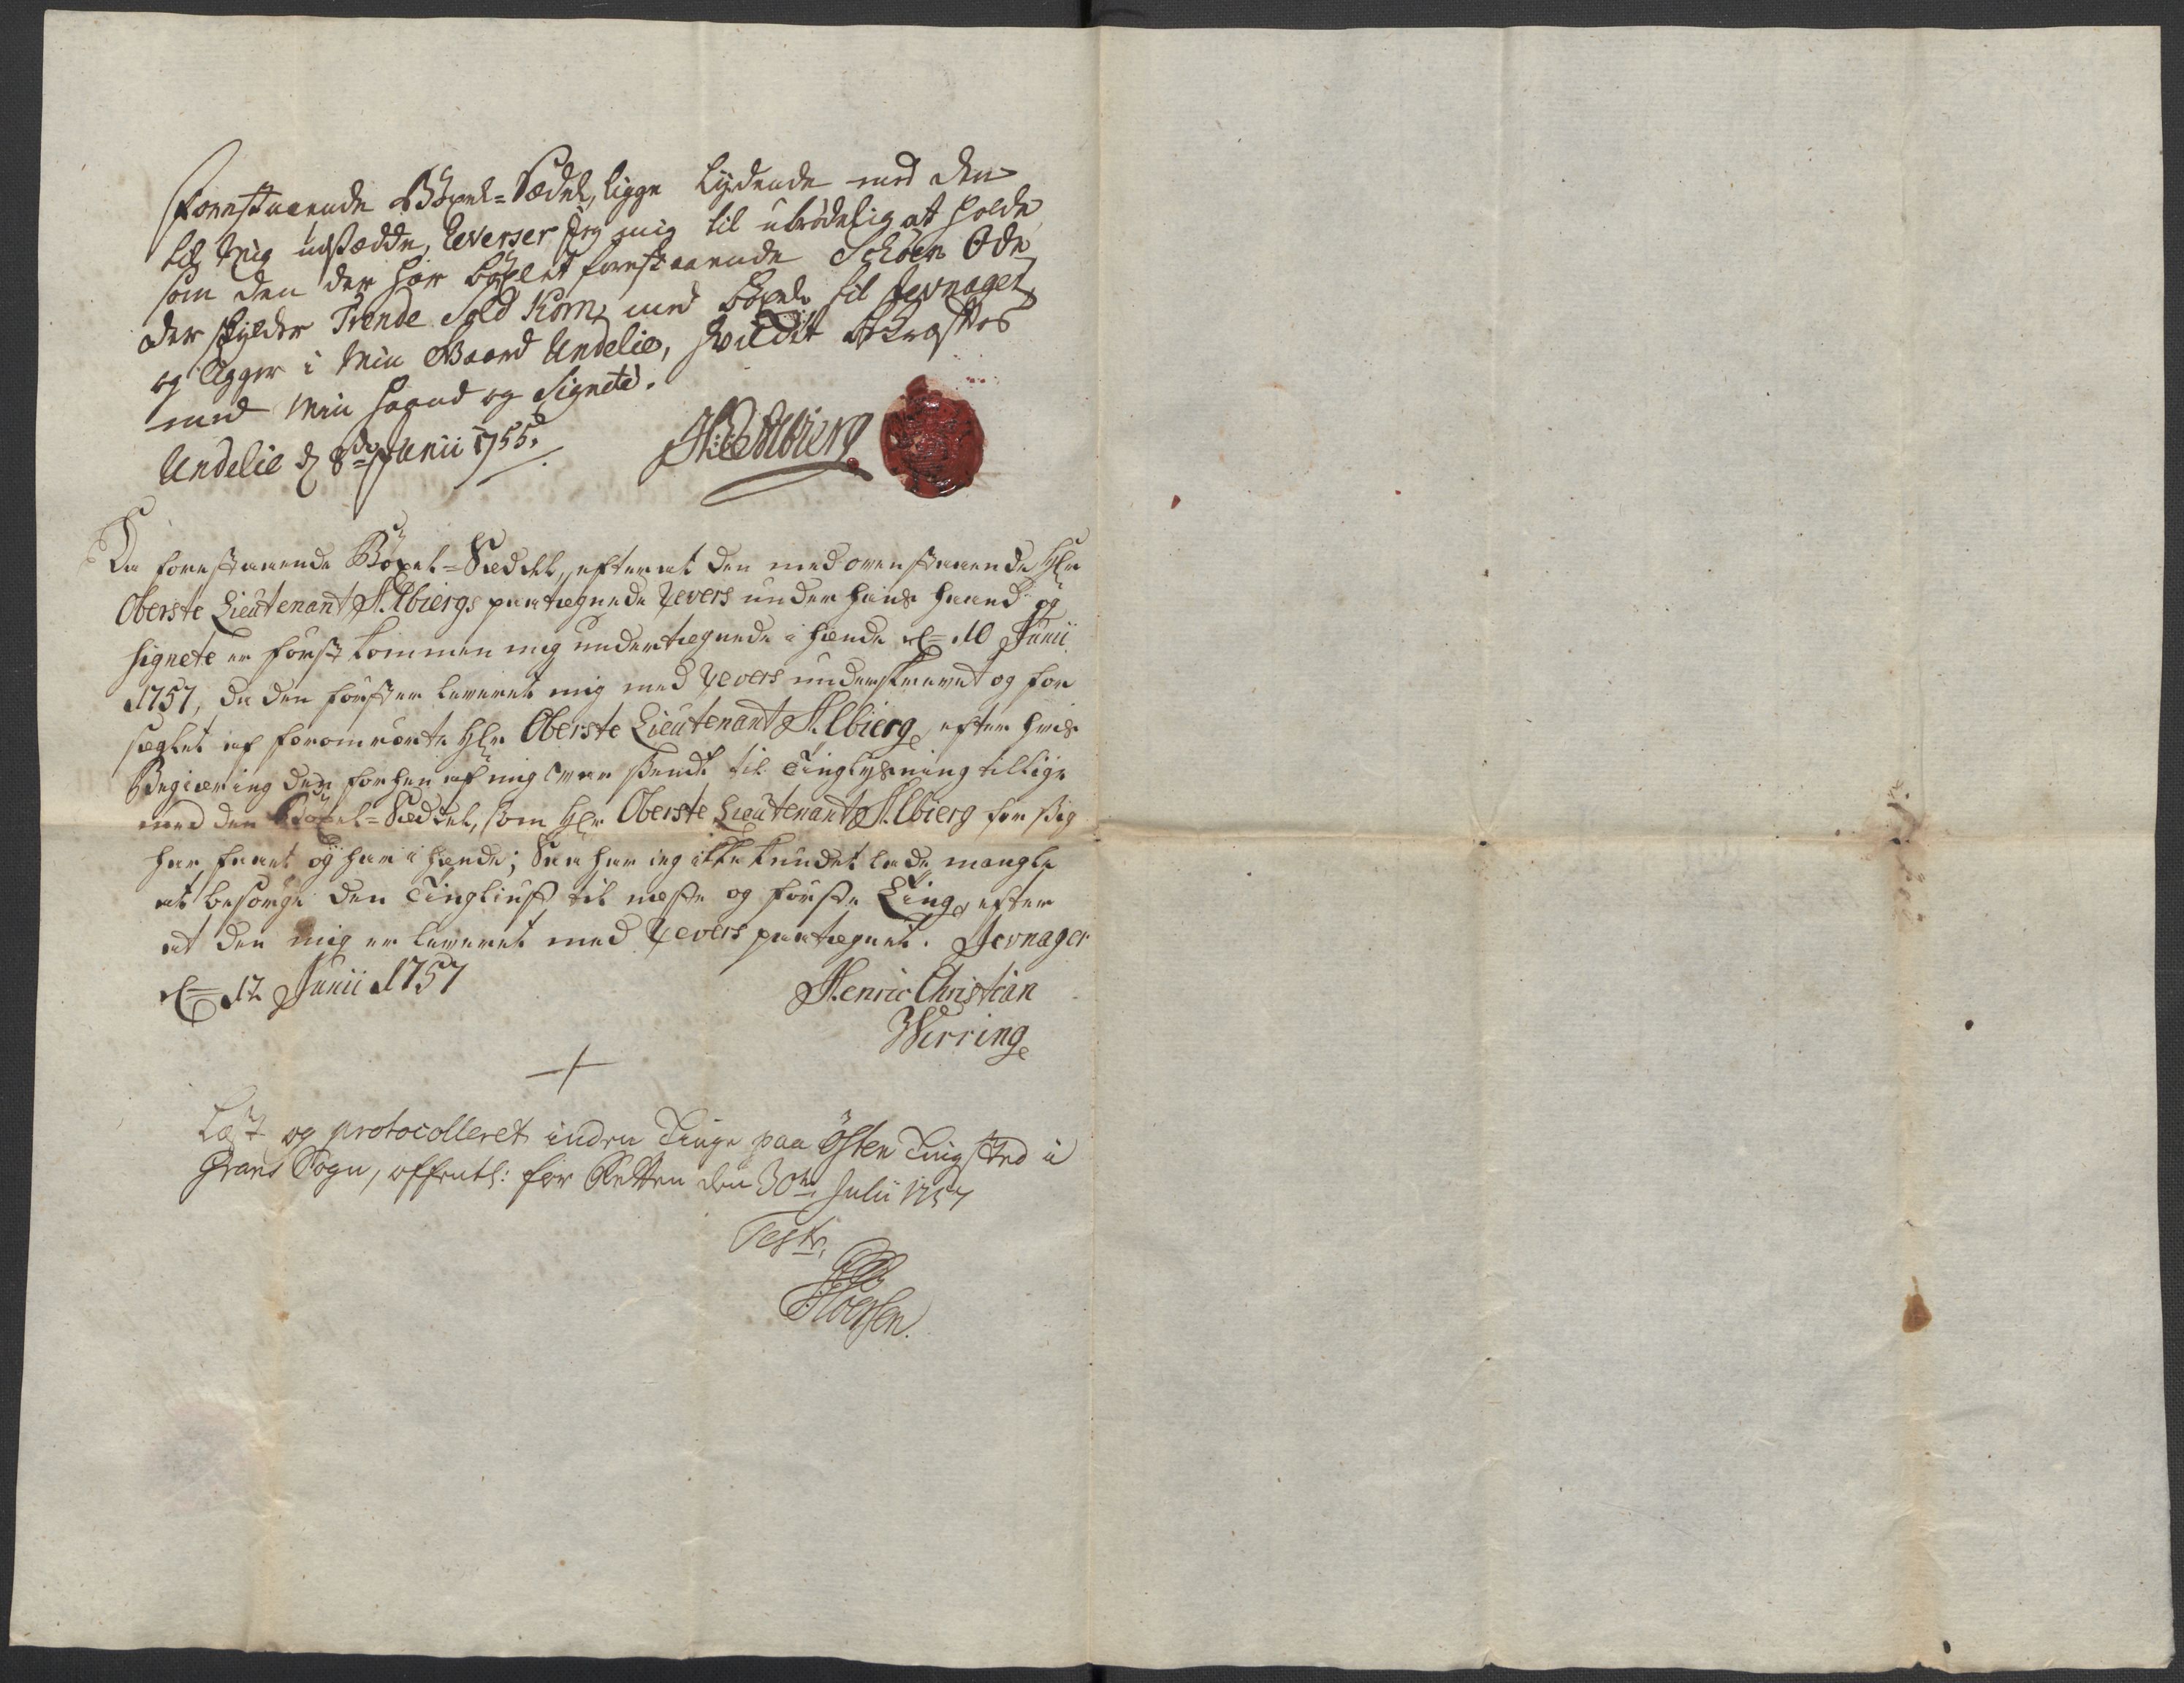 Forestaaende Böxel=Sædel, ligge lydende med den
til Mig udstædde, Reverser Jeg mig til ubrödelig at holde
som den der har böxlet forestaaende Schöen Öde
der skylder Trende Sold Korn, med böxel til Jevnager
og ligger i Min Gaard Undelie, hvilket bekræftes
med Min haand og Signete.
Undelie d 8de Junii 1755.
Da forestaaende Böxel=Seddel, efter at den med ovenstaaende Hr
Oberste Lieutenant H. Elbiergs paategnede Revers under hans haand og
signete er först kommen mig undertegnede i hænde d= 10 Junii
1757, da den först er leveret mig med Revers underskrevet og for
seglet af foromrörte Hr Oberste Lieutenant H. Elbierg, efter hvis
Begiæring den forhen af mig var sendt til Tinglysning tillige
med den Böxel=Seddel, som Hr Oberste Lieutenant H. Elbierg for sig
har faaet og har i hænde; Saa har ieg ikke kundet lade mangle
at besörge den Tingliust til næste og förste Ting, efter
at den mig er leveret med Revers paategnet. Jevnager
d= 12 Junii 1757
Henric Christian
Wirring
Læst og protocolleret inden Tinge paa Östen Tingsted i
Grans Sogn, offentl: for Retten den 30te Julii 1757
Test: